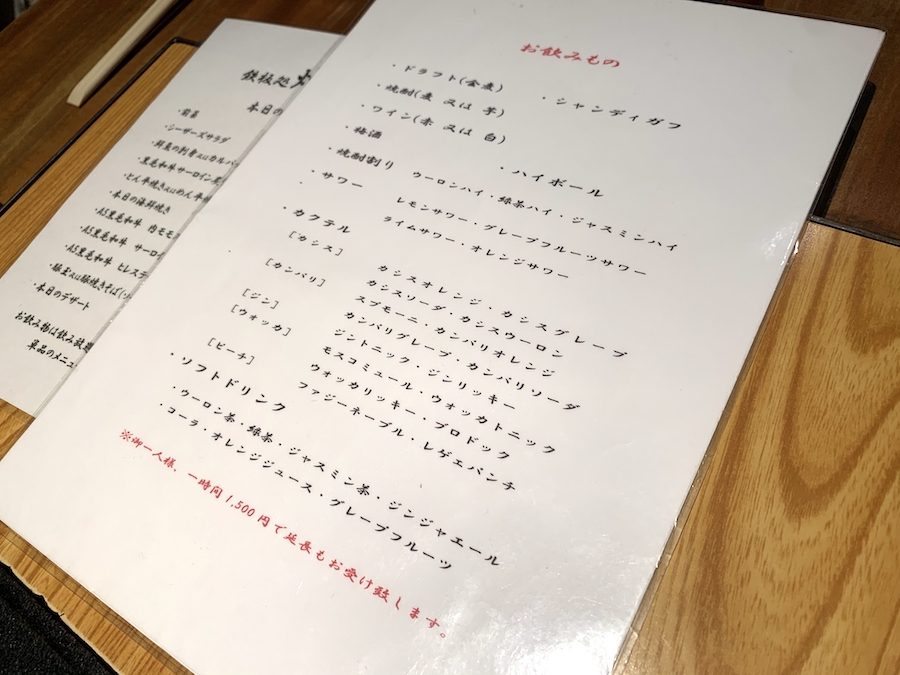 鉄板処
本日の
・前菜
・シーザーズサラダ
・鮮魚の刺身又はカルパ
・黒毛和牛サーロイン
・とん平焼き又はめん平
・本日の海鮮焼き
・A5黒毛和牛 内モモ
・A5黒毛和牛 サーロ
・A5黒毛和牛 ヒレステ
・豚玉又は豚焼きそば(ソ
・本日のデザート
お飲み物は飲み放題
単品のメニュ
お飲みもの
・ドラフト(金麦) ・シャンディガフ
・焼酎(麦 又は 芋)
・ワイン(赤 又は 白)
・梅酒 ・ハイボール
・焼酎割り ウーロンハイ・緑茶ハイ・ジャスミンハイ
・サワー レモンサワー・グレープフルーツサワー
・ ライムサワー・オレンジサワー
・カクテル
[カシス] カシスオレンジ・カシスグレープ
カシスソーダ・カシスウーロン
[カンパリ] スプモーニ・カンパリオレンジ
カンパリグレープ・カンパリソーダ
[ジン] ジントニック・ジンリッキー
[ウォッカ] モスコミュール・ウォッカトニック
ウォッカリッキー・ブロドック
[ピーチ] ファジーネーブル・レゲエパンチ
・ソフトドリンク
・ウーロン茶・緑茶・ジャスミン茶・ジンジャエール
・コーラ・オレンジジュース・グレープフルーツ
※御一人様、一時間1,500円で延長もお受け致します。